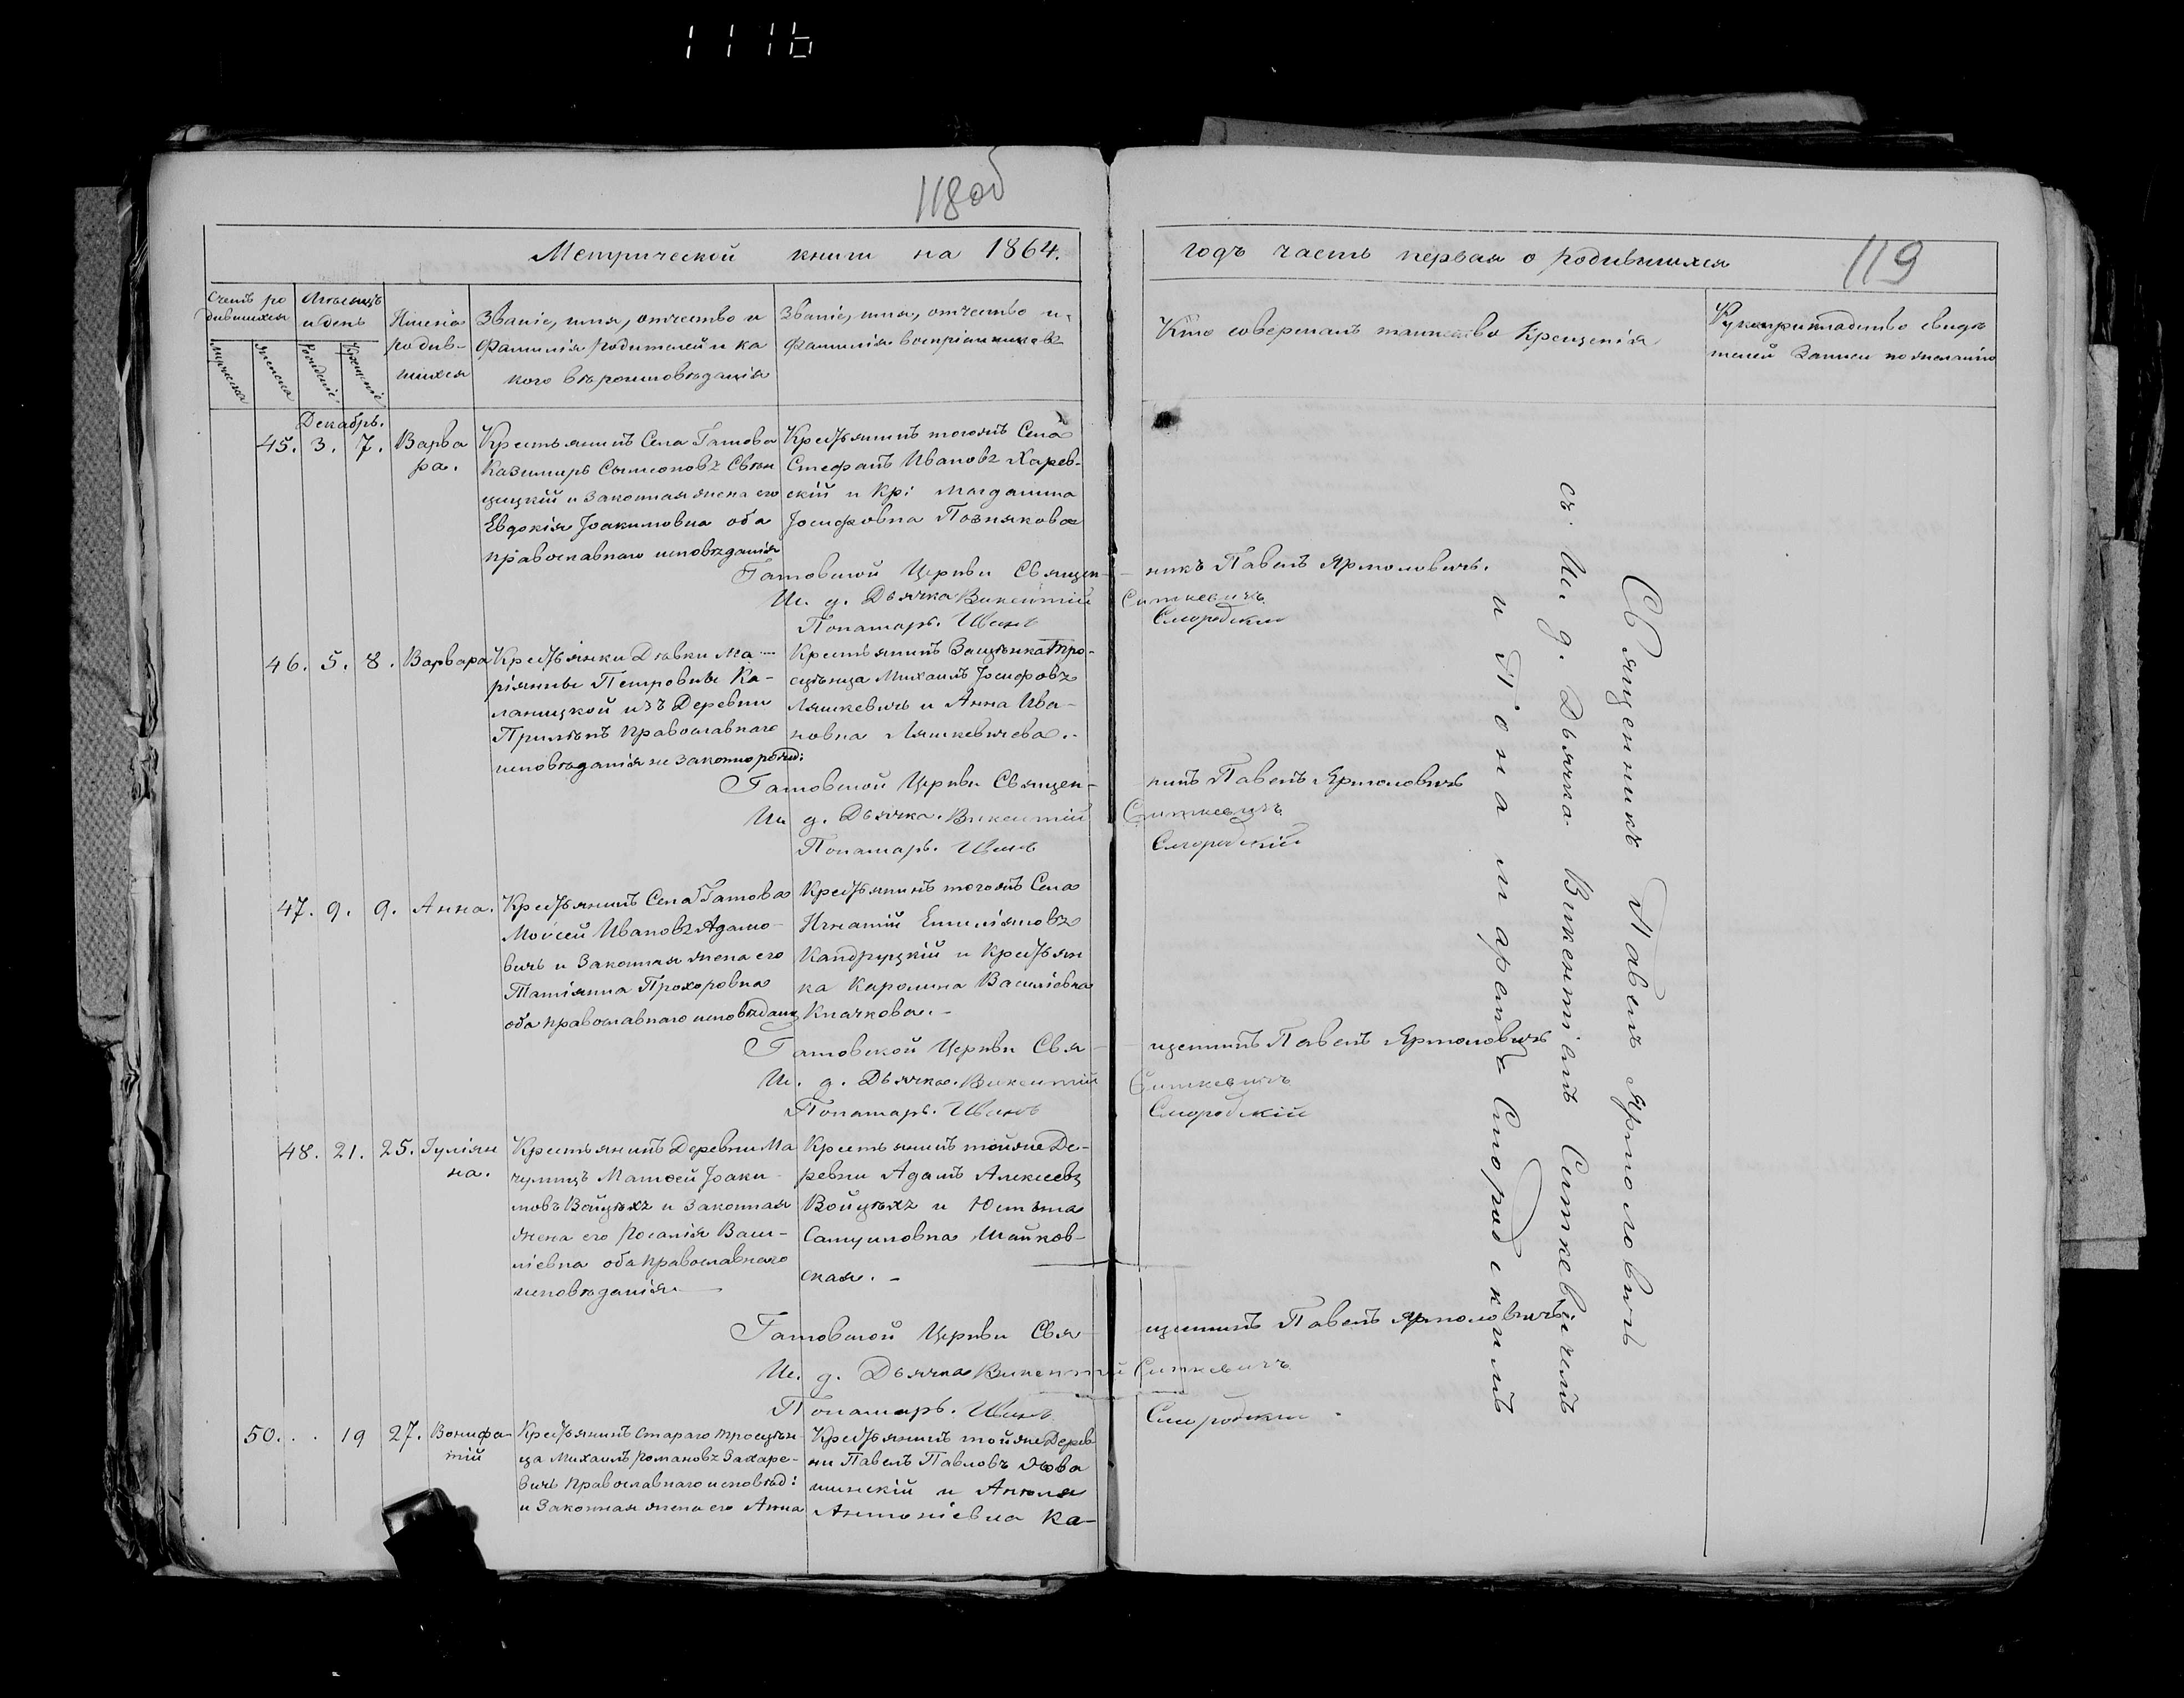 1116
118 об
119
Метрической книги на 1864.
годъ часть первая о родившихся
Счетъ ро
дившихся
Мѣсяцъ
и день
Имена
родив-
шихся
Званіе, имя, отчество и
Фамилія родителей и ка
кого вѣроисповѣданія
Званіе, имя, отчество и
Фамилія воспріемниковъ
Кто совершалъ таинство Крещенія
Рукоприкладство свидѣ
телей Записи по желанію
Мужеска
Женска
Рожденіе
Крещеніе
Декабрь.
45. 3. 7. Варва
ра.
Крестьянинъ Села Гатова
Казимиръ Сымоновъ Свен
цицкій и Законная жена его
Евдокія Іоакимовна оба
православнаго исповѣданія
Крестьянинъ тогожъ Села
Стефанъ Ивановъ Харев-
скій и Кр: Магдалина
Іосифовна Познякова
Гатовской Церкви Священ-
никъ Павелъ Ярмоловичъ.
И. д. Дьячка Викентій Ситкевичъ
Понамарь. Иванъ Смородскій
46. 5. 8. Варвара
Крестьянки Дѣвки Ма-
ріянны Петровны Ка-
ланицкой изъ Деревни
Прилѣпъ Православнаго
исповѣданія не законнорожд:
Крестьянинъ Застѣнка Тро-
сценца Михаилъ Іосифовъ
Ляшкевичъ и Анна Ива-
новна Ляшкевичева.
Гатовской Церкви Священ-
никъ Павелъ Ярмоловичъ
И. д. Дьячка. Викентій Ситкевичъ
Понамарь. Иванъ Смородскій
47. 9. 9. Анна.
Крестьянинъ Села Гатова
Моѵсей Ивановъ Адамо-
вичъ и Законная жена его
Татіянна Прохоровна
оба православнаго исповѣданія
Крестьянинъ тогожъ Села
Игнатій Емиліяновъ
Кандруцкій и Крестьян
ка Каролина Василіевна
Клачкова.
Гатовской Церкви Свя-
щенникъ Павелъ Ярмоловичъ
И. д. Дьячка. Викентій Ситкевичъ
Понамарь. Иванъ Смородскій
48. 21. 25. Іуліян
на.
Крестьянинъ Деревни Ма
чулищъ Матѳей Іоаки-
мовъ Войцѣхъ и Законная
жена его Розалія Васи-
ліевна оба православнаго
исповѣданія
Крестьянинъ тойже Де-
ревни Адамъ Алексеевъ
Войцѣхъ и Юстына
Самуиловна Манков-
ская.
Гатовской Церкви Свя
щенникъ Павелъ Ярмоловичъ.
И. д. Дьячка Викентій Ситкевичъ
Понамарь. Иванъ Смородскій
50. 19 27. Вонифа-
тій
Крестьянинъ Стараго Тросцен-
ца Михаилъ Романовъ Захаре-
вичъ Православнаго исповѣд:
и Законная жена его Анна
Крестьянинъ тойже Дерев
ни Павелъ Павловъ
и Анеля
Антоніевна Ка-
Священникъ Павелъ Ярмоловичъ
съ И. д. Дьячка Викентіемъ Ситкевичемъ
и Понамаремъ Смородскимъ